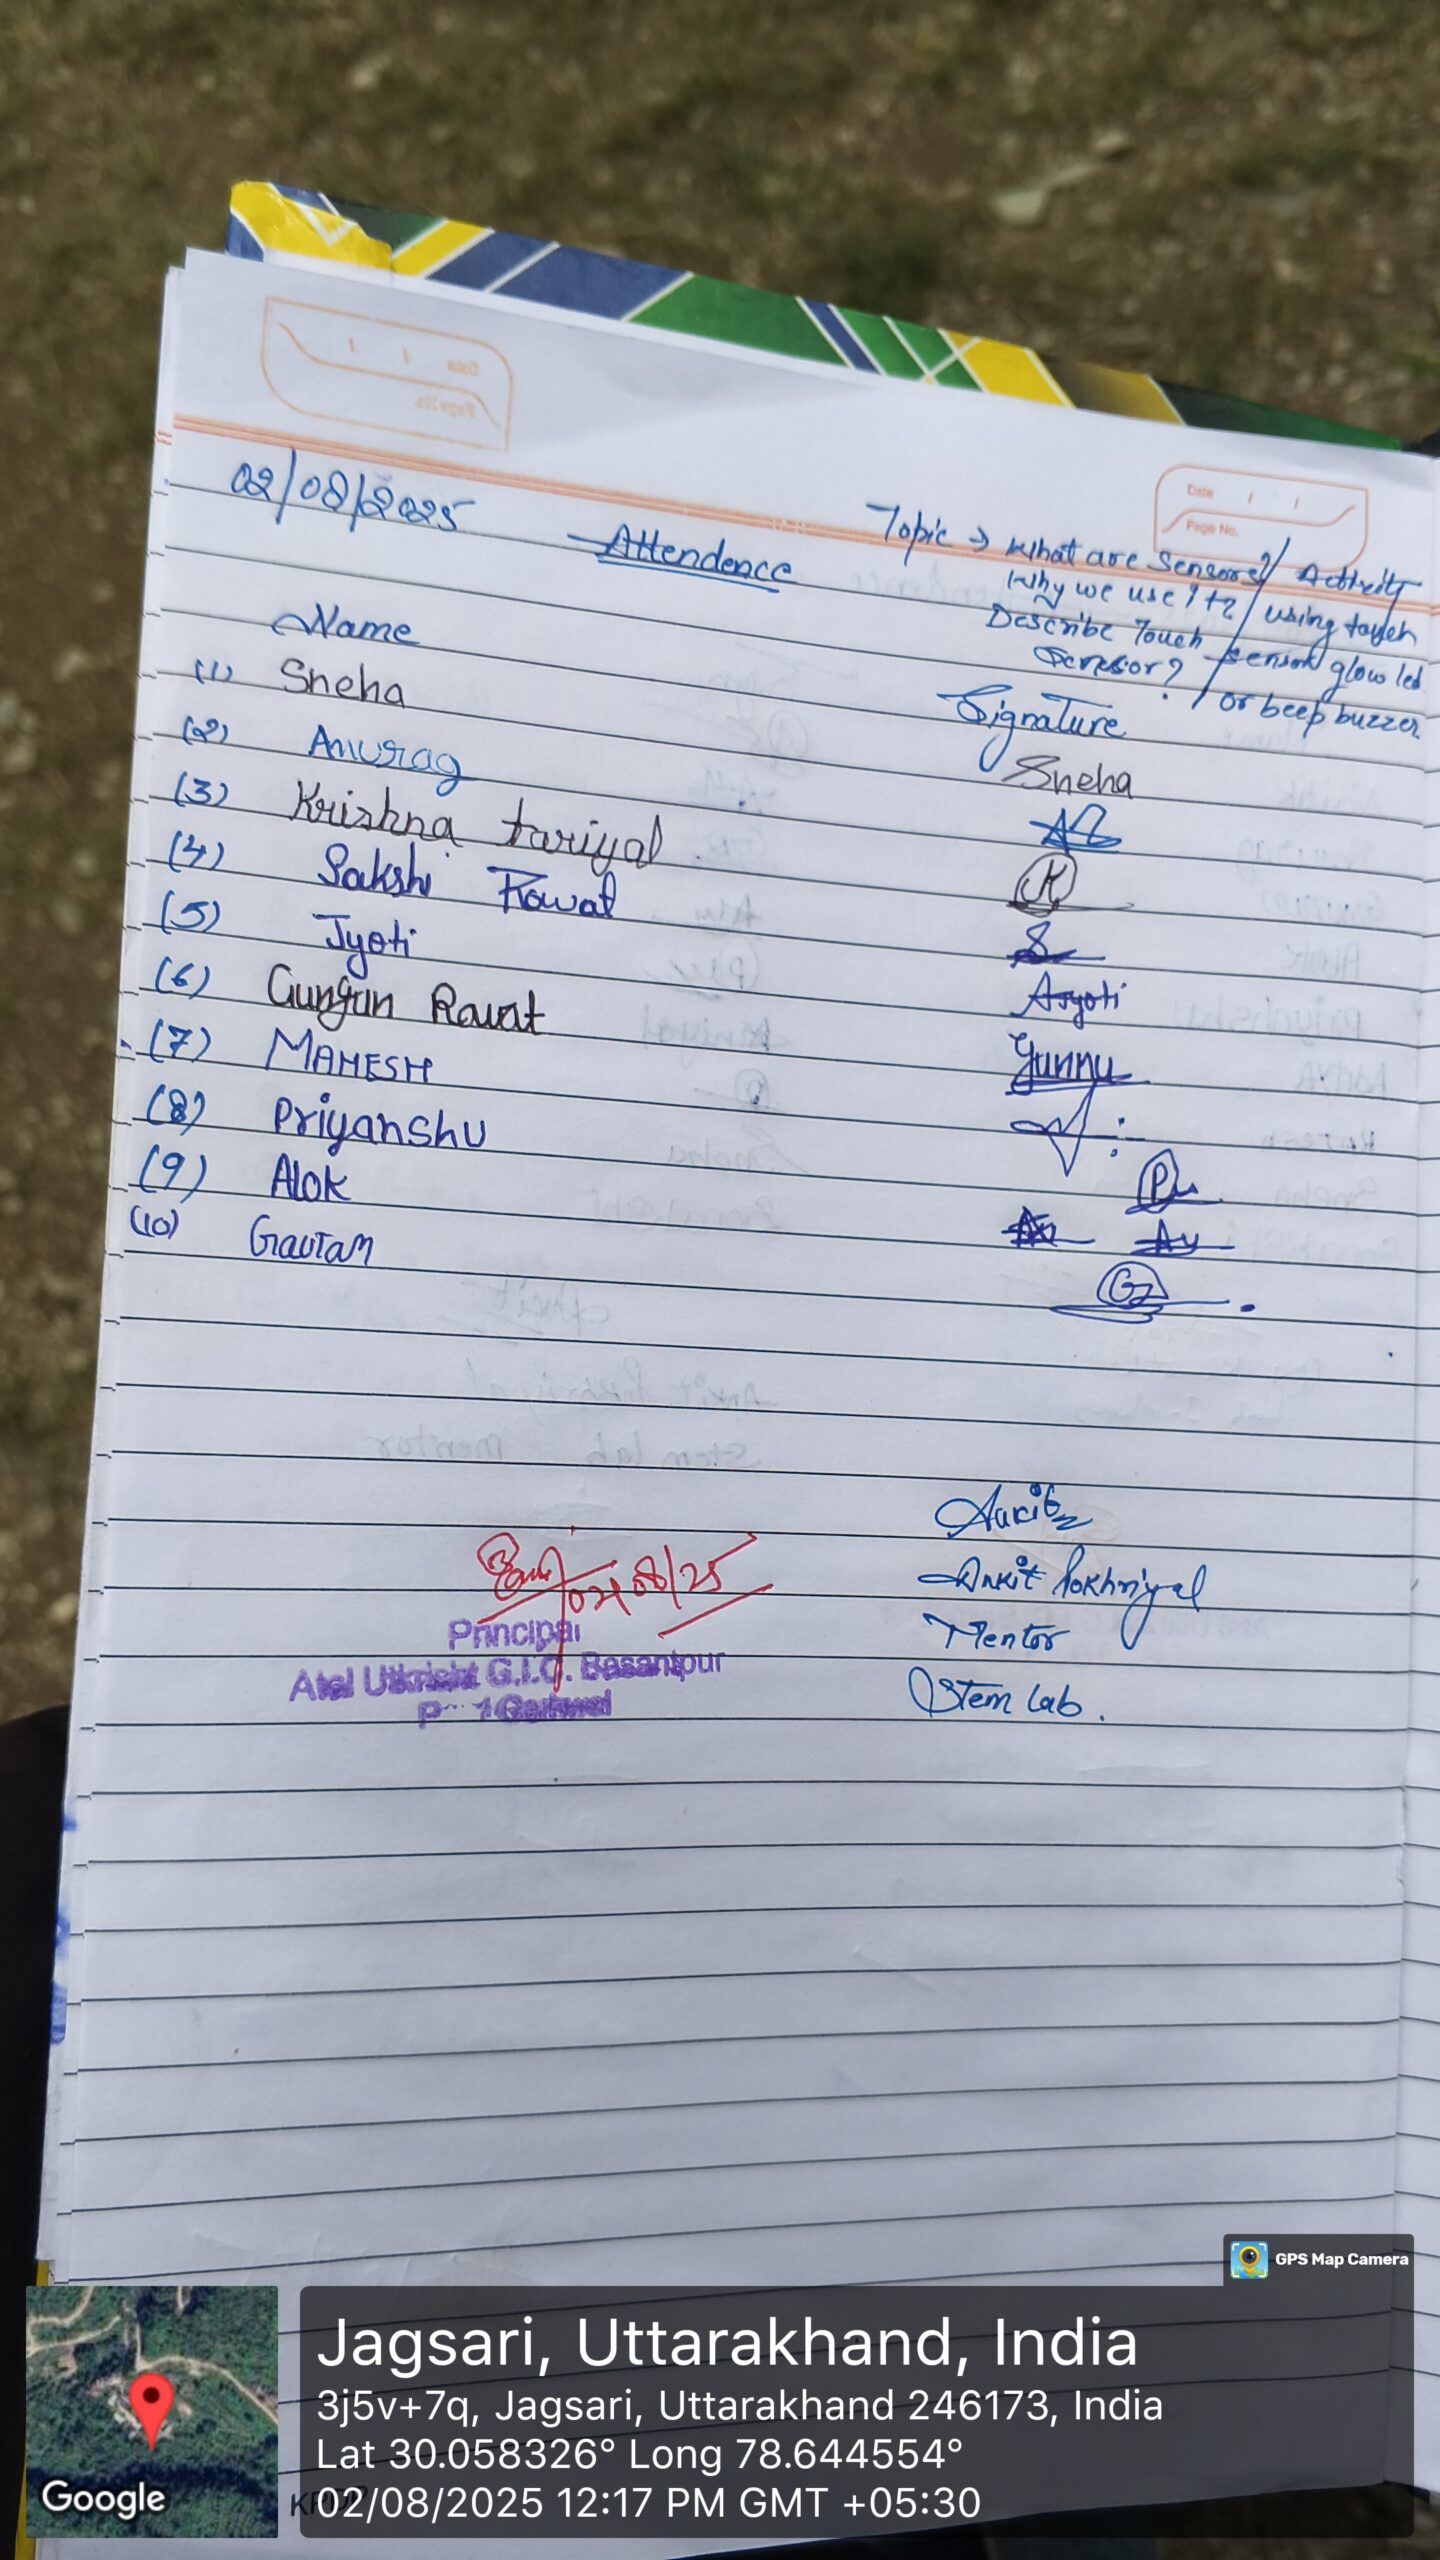 Date
Page No.
02/08/2025
Attendence
Topic → What are Sensors? / Activity
Why we use it? / using touch
Describe Touch / sensor glow led
Sensor? / or beep buzzer
Name
Signature
(1) Sneha Sneha
(2) Anurag
(3) Krishna tariyal K
(4) Sakshi Rawat S
(5) Jyoti Jyoti
(6) Gungun Rawat Gunnu
(7) MAHESH
(8) Priyanshu
(9) Alok
(10) Gautam
Ankit
Ankit Pokhriyal
Mentor
Stem Lab.
Principal
Atal Utkrisht G.I.C. Basantpur
Garhwal
GPS Map Camera
Jagsari, Uttarakhand, India
3j5v+7q, Jagsari, Uttarakhand 246173, India
Lat 30.058326° Long 78.644554°
02/08/2025 12:17 PM GMT +05:30
Google